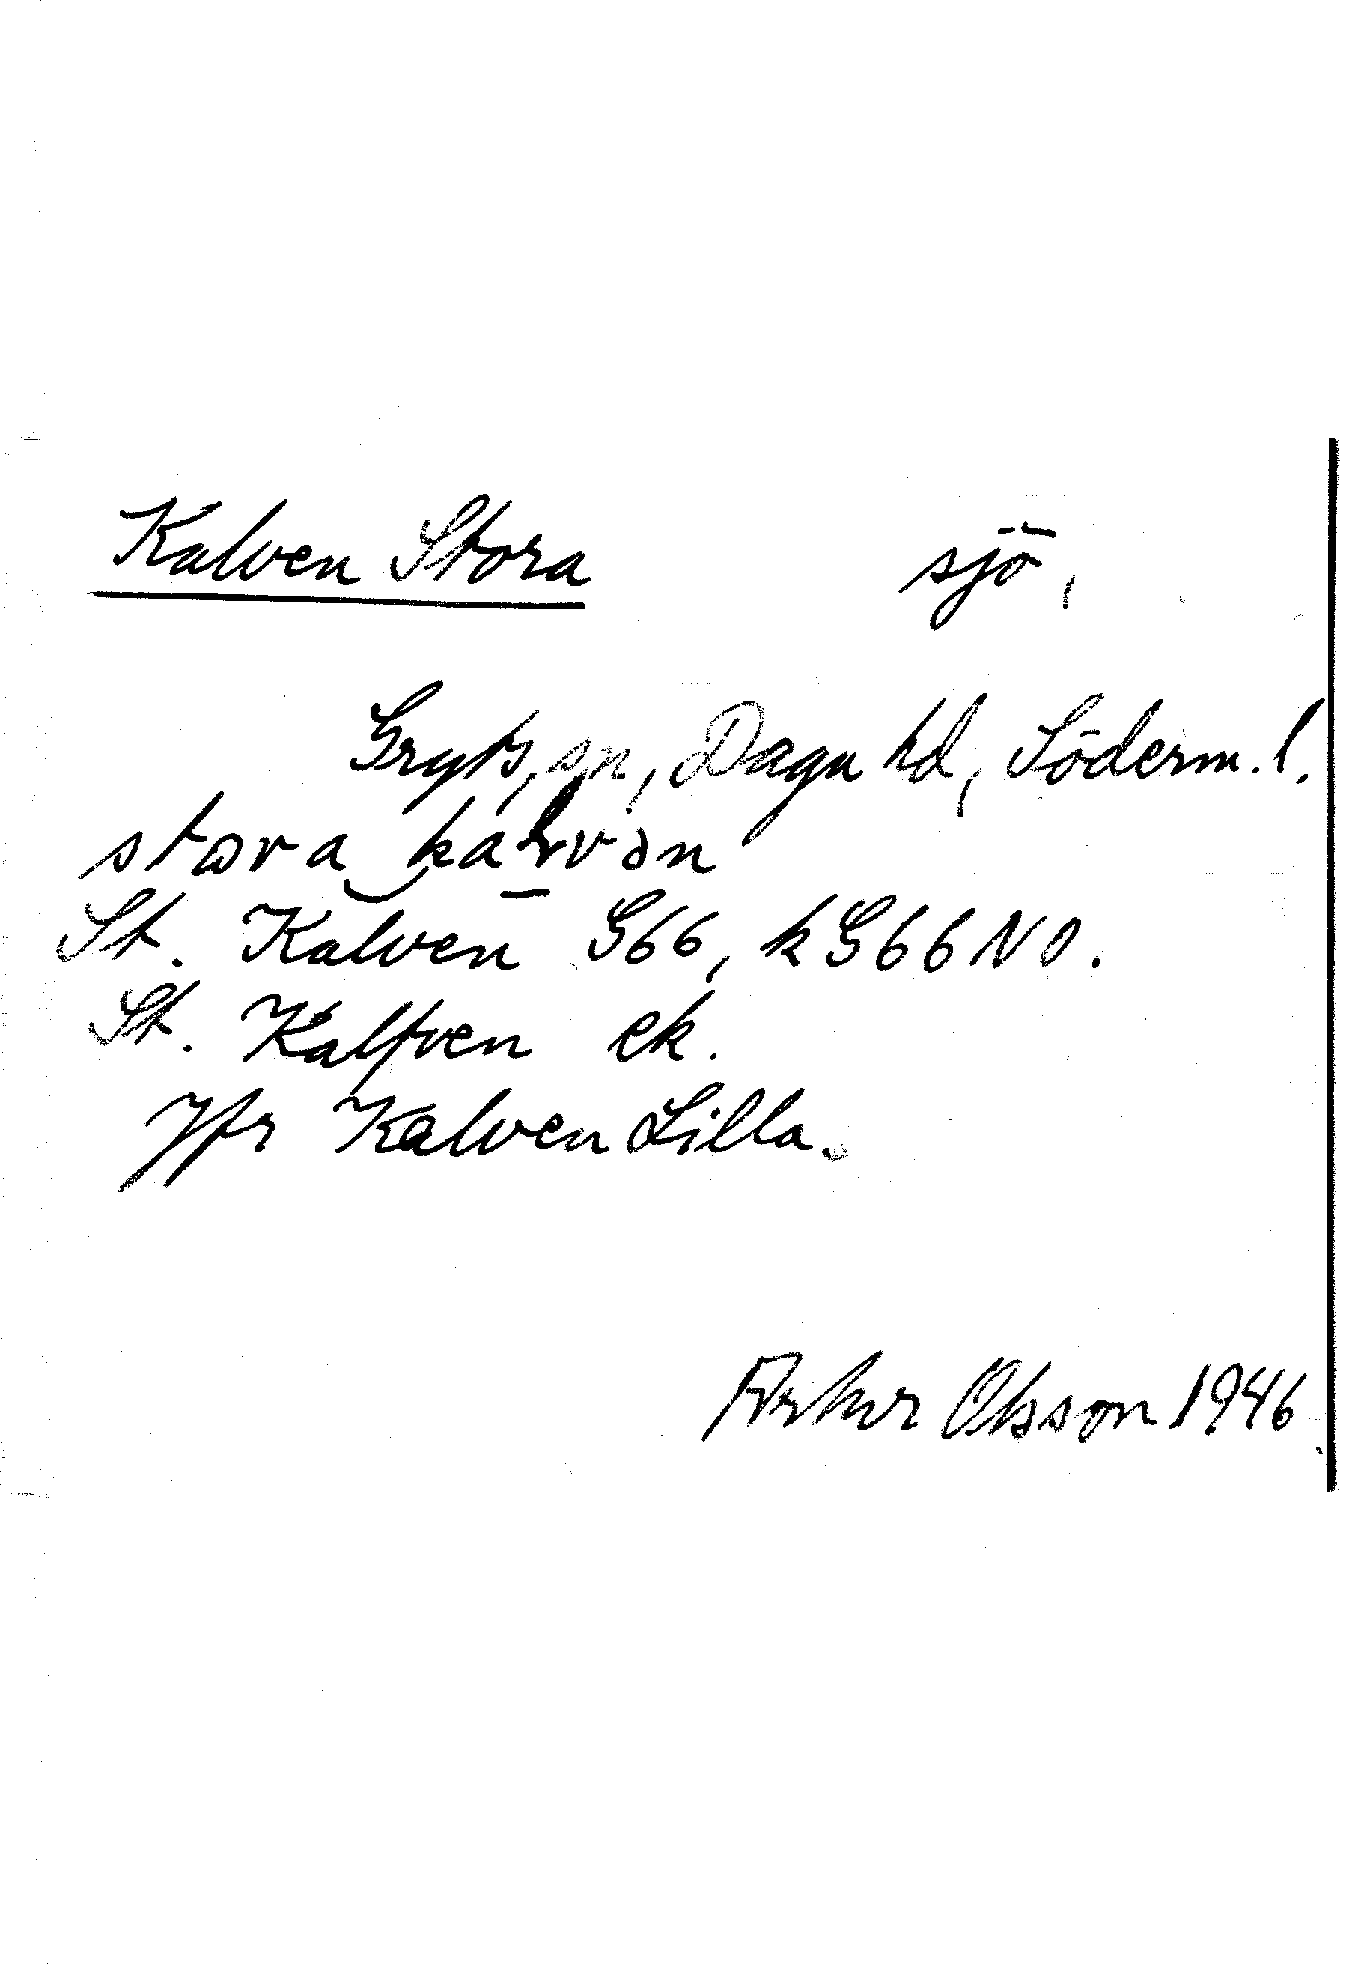 Kalven Stora sjö,
Gryts, sn, Daga hd, Söderm. l.
stora kalvən
St. Kalven G66, kG66NO.
St. Kalfven ek.
Jfr Kalven Lilla.
Artur Olsson 1946